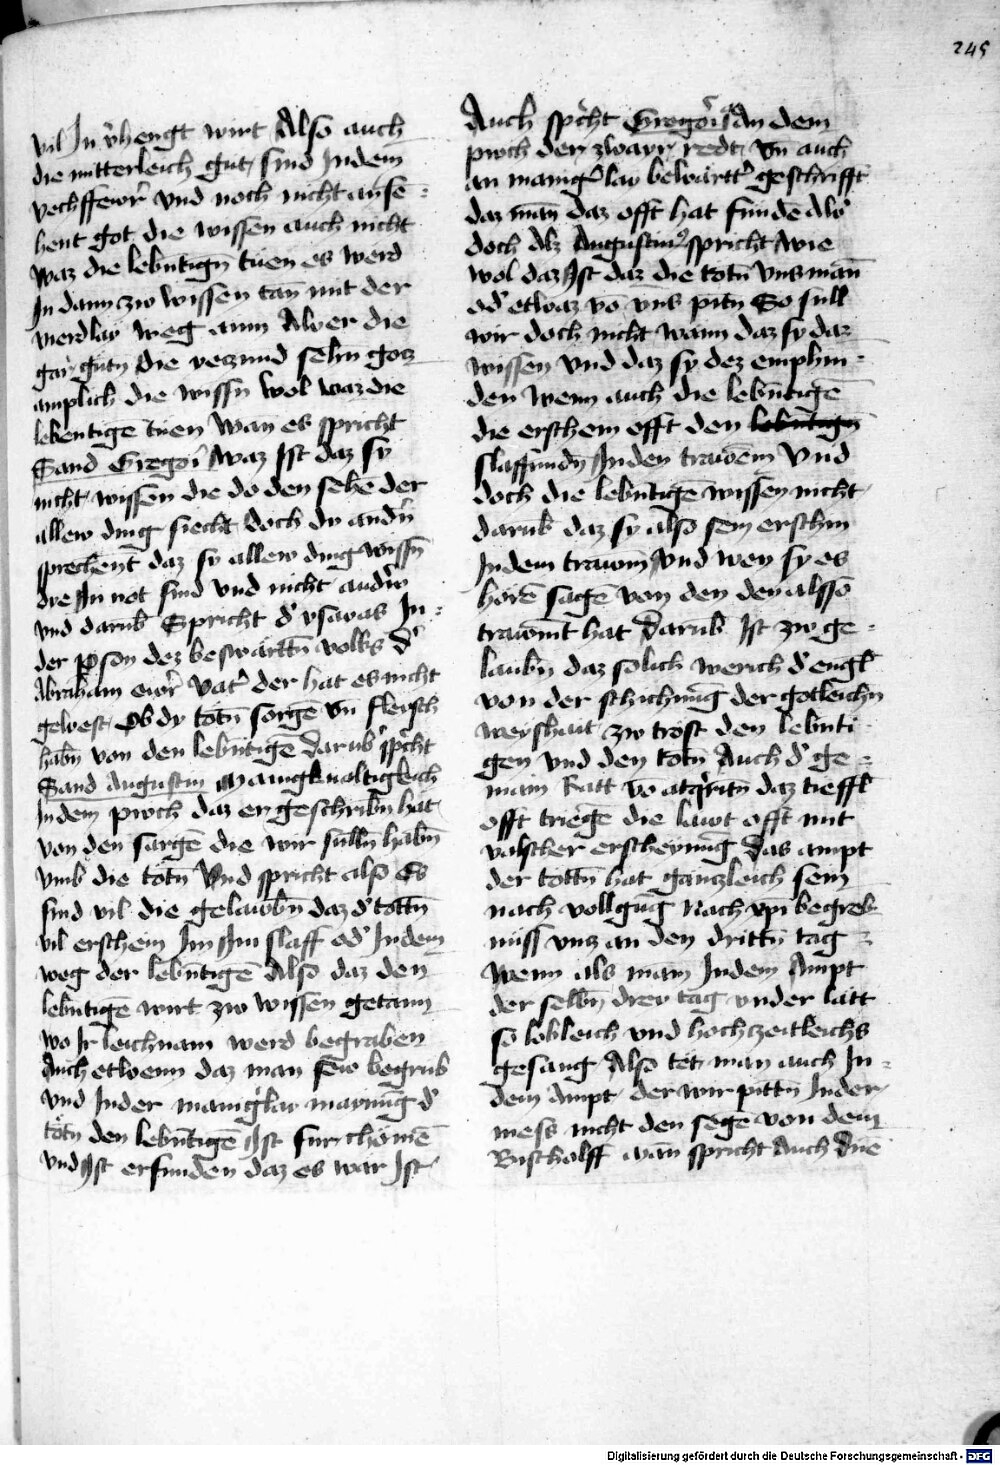 245
vil In v̾hengt wirt Also auch
die mitterleich gut sind Indem
vechffewr̾ vnd noch nicht anse¬
hent got die wissen auch nicht
waz die lebntign̄ tuen es werd
In dann zw wissen tan mit der
vierdlay weg ainn Aber die
gar gutn̄ die yeczund sehn gotz
amplich die wissn̄ wol waz die
lebentigē tuen Wan es spricht
Sand Gregori Awaz Ist daz sy
nicht wissen die do den sehe der
allew ding siecht doch dy andn̄
sprechent daz sy allew ding wissn̄
dye In not sind vnd nicht andrew
vnd darub̄ Spricht d̾ ysayas In¬
der pson dez beswärttn̄ volks d̾
Abraham ewr̾ vat̾ der hat es nicht
gewest Ob dy totn̄ sorgē vn̄ fleisch
habn̄ von den lebntigē darub̄ spc̾ht
Sand Augustin Manigkualtigkleich
Indem puoch daz er geschribn̄ hat
von den sargē die wir sulln̄ habn̄
vmb die totn̄ Vnd spricht also Es
sind vil die gelawbn̄ daz d̾ tottn̄
vil erschein Im Im slaff od̾ Indem
weg der lebntigē Also daz den
lebntigē wirt zw wissen getann
wo Ir leichnam werd begraben
Auch etwenn daz man sew begrub
vnd Inder manig̾lay maynug̅ d̾
totn̄ den lebntigē Ist fur chömē
vnd Ist erfunden daz es war Ist
Auch spc̾ht Gregori9 An dem
puoch der zwayr redt vn̄ auch
an manig̾lay bewärtt̾ geschrifft
daz man daz offt hat fundē Alz
doch Alz Augustin9 spricht Awie
wol daz Ist daz die totn̄ vns man̄
od̾ etwaz vō vns pitn̄ So sull
wir doch nicht wänn daz sy daz
wissen vnd daz sy dez emphin¬
den Wenn auch die lebntigē
die erschein offt den lebntign̄
slaffundn̄ Inden trawem̄ Vnd
doch die lebntigē wissen nicht
darub̄ daz sy also sein erschin
Indem trawm̄ Vnd wen sy es
hörē sagē von den den alssō
trawmt hat Darub̄ Ist zw ge¬
laubn̄ daz solich werich d̾ engl̄
von der schichnug̅ der gotleichn̄
weyshait zw trost den lebnti¬
gen vnd den totn̄ Auch d̾ ge¬
main Ratt vō daz tieffl̄
offt triegē die lawt offt mit
valscher erscheynug̅ Das ampt
der tottn̄ hat gänzleich sein
nach vollgug̅ Nach xpi begreb¬
nüss vnz an den drittn̄ tag
Wenn als man Indem Ampt
der selbn̄ drey tag vnder latt
so lobleich vnd hochzeitleichs
gesang Also tet man auch In¬
dem Ampt der wir pittn̄ Inder
mess nicht den segē von dem
Bischolff wan̄ spricht Auch Ane
Digitalisierung gefördert durch die Deutsche Forschungsgemeinschaft - DFG